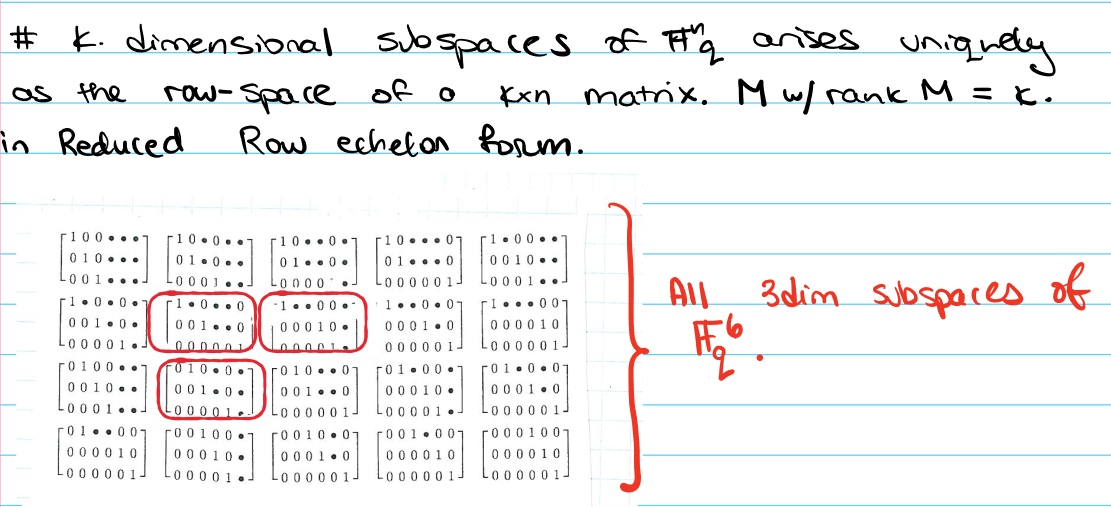 # k. dimensional subspaces of 𝔽ⁿq arises uniquely
as the row-space of a k×n matrix. M w/ rank M = k.
in Reduced Row echelon form.
1 0 0 • • • 1 0 • 0 • • 1 0 • • 0 • 1 0 • • • 0 1 • 0 0 • •
0 1 0 • • • 0 1 • 0 • • 0 1 • • 0 • 0 1 • • • 0 0 0 1 0 • •
0 0 1 • • • 0 0 0 1 • • 0 0 0 0 • 0 0 0 0 0 1 0 0 0 1 • •
1 • 0 • 0 • 1 • 0 • • 0 1 • • 0 0 • 1 • • 0 • 0 1 • • • 0 0
0 0 1 • 0 • 0 0 1 • • 0 0 0 0 1 0 • 0 0 0 1 • 0 0 0 0 0 1 0
0 0 0 0 1 • 0 0 0 0 0 1 0 0 0 0 1 • 0 0 0 0 0 1 0 0 0 0 0 1
0 1 0 0 • • 0 1 0 • 0 • 0 1 0 • • 0 0 1 • 0 0 • 0 1 • 0 • 0
0 0 1 0 • • 0 0 1 • 0 • 0 0 1 • • 0 0 0 0 1 0 • 0 0 0 1 • 0
0 0 0 1 • • 0 0 0 0 1 • 0 0 0 0 0 1 0 0 0 0 1 • 0 0 0 0 0 1
0 1 • • 0 0 0 0 1 0 0 • 0 0 1 0 • 0 0 0 1 • 0 0 0 0 0 1 0 0
0 0 0 0 1 0 0 0 0 1 0 • 0 0 0 1 • 0 0 0 0 0 1 0 0 0 0 0 1 0
0 0 0 0 0 1 0 0 0 0 1 • 0 0 0 0 0 1 0 0 0 0 0 1 0 0 0 0 0 1
All 3dim subspaces of
𝔽⁶q.